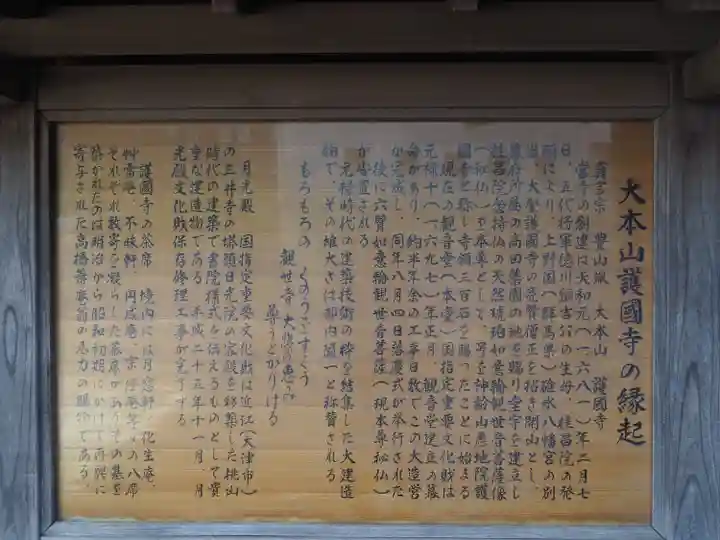 大本山護國寺の縁起
真言宗 豊山派 大本山 護國寺
当寺の創建は天和元(一六八一)年二月七
日、五代将軍徳川綱吉公の生母、桂昌院の発
願により、上野国(群馬県)碓氷八幡宮の別
当、大聖護国寺の亮賢僧正を招き開山とし、
幕府所属の高田薬園の地を賜り堂宇を建立し
桂昌院念持仏の天然琥珀如意輪観世音菩薩像
(秘仏)を本尊として、号を神齢山悉地院護
國寺と称し寺領三百石を賜ったことに始まる
現在の観音堂(本堂)国指定重要文化財は
元禄十(一六九七)年正月、観音堂建立の幕
命があり、約半年余の工事日数でこの大造営
が完成し、同年八月四日落慶式が挙行された
後に六臂如意輪観世音菩薩(現本尊秘仏)
が安置される
元禄時代の建築技術の粋を結集した大建造
物で、その雄大さは都内随一と称賛される
もろもろの くのうをすくう
観世音 大悲の恵み
尊うとかりける
月光殿 国指定重要文化財は近江(大津市)
の三井寺の塔頭日光院の客殿を移築した桃山
時代の建築で書院様式を伝えるものとして貴
重な建造物である 平成二十五年十一月、月
光殿文化財保存修理工事が完了する
護國寺の茶席 境内には月窓軒、化生庵、
艸雷庵、不昧軒、円成庵、宗澄庵等々の八席
それぞれ数寄を凝らした茶席がありその基を
築かれたのは明治から昭和初期にかけて再興に
寄与された高橋箒庵翁の尽力の賜物である。